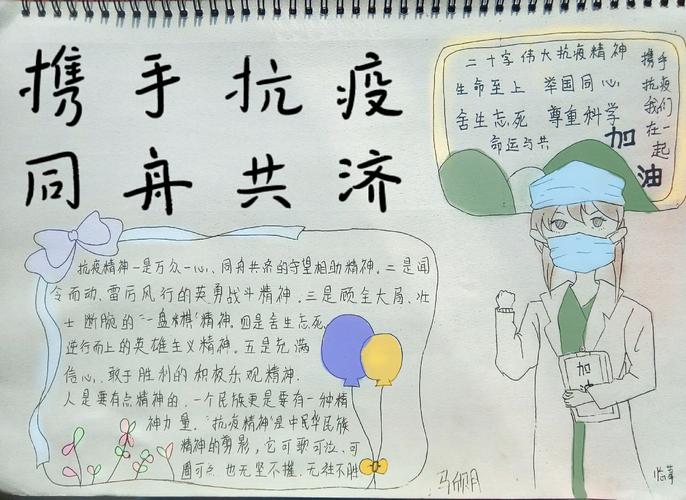 携手抗疫
同舟共济
二十字伟大抗疫精神
生命至上 举国同心
舍生忘死 尊重科学
命运与共
携手
抗疫
我们
在一
起
加
油
抗疫精神一是万众一心、同舟共济的守望相助精神。二是闻
令而动、雷厉风行的英勇战斗精神。三是顾全大局、壮
士断腕的“一盘棋”精神。四是舍生忘死,
逆行而上的英雄主义精神。五是充满
信心、敢于胜利的积极乐观精神.
人是要有点精神的。一个民族更是要有一种精
神力量。“抗疫精神”是中民华民族
精神的剪影,它可歌可泣、可
圈可点 也无坚不摧、无往不胜
加
油